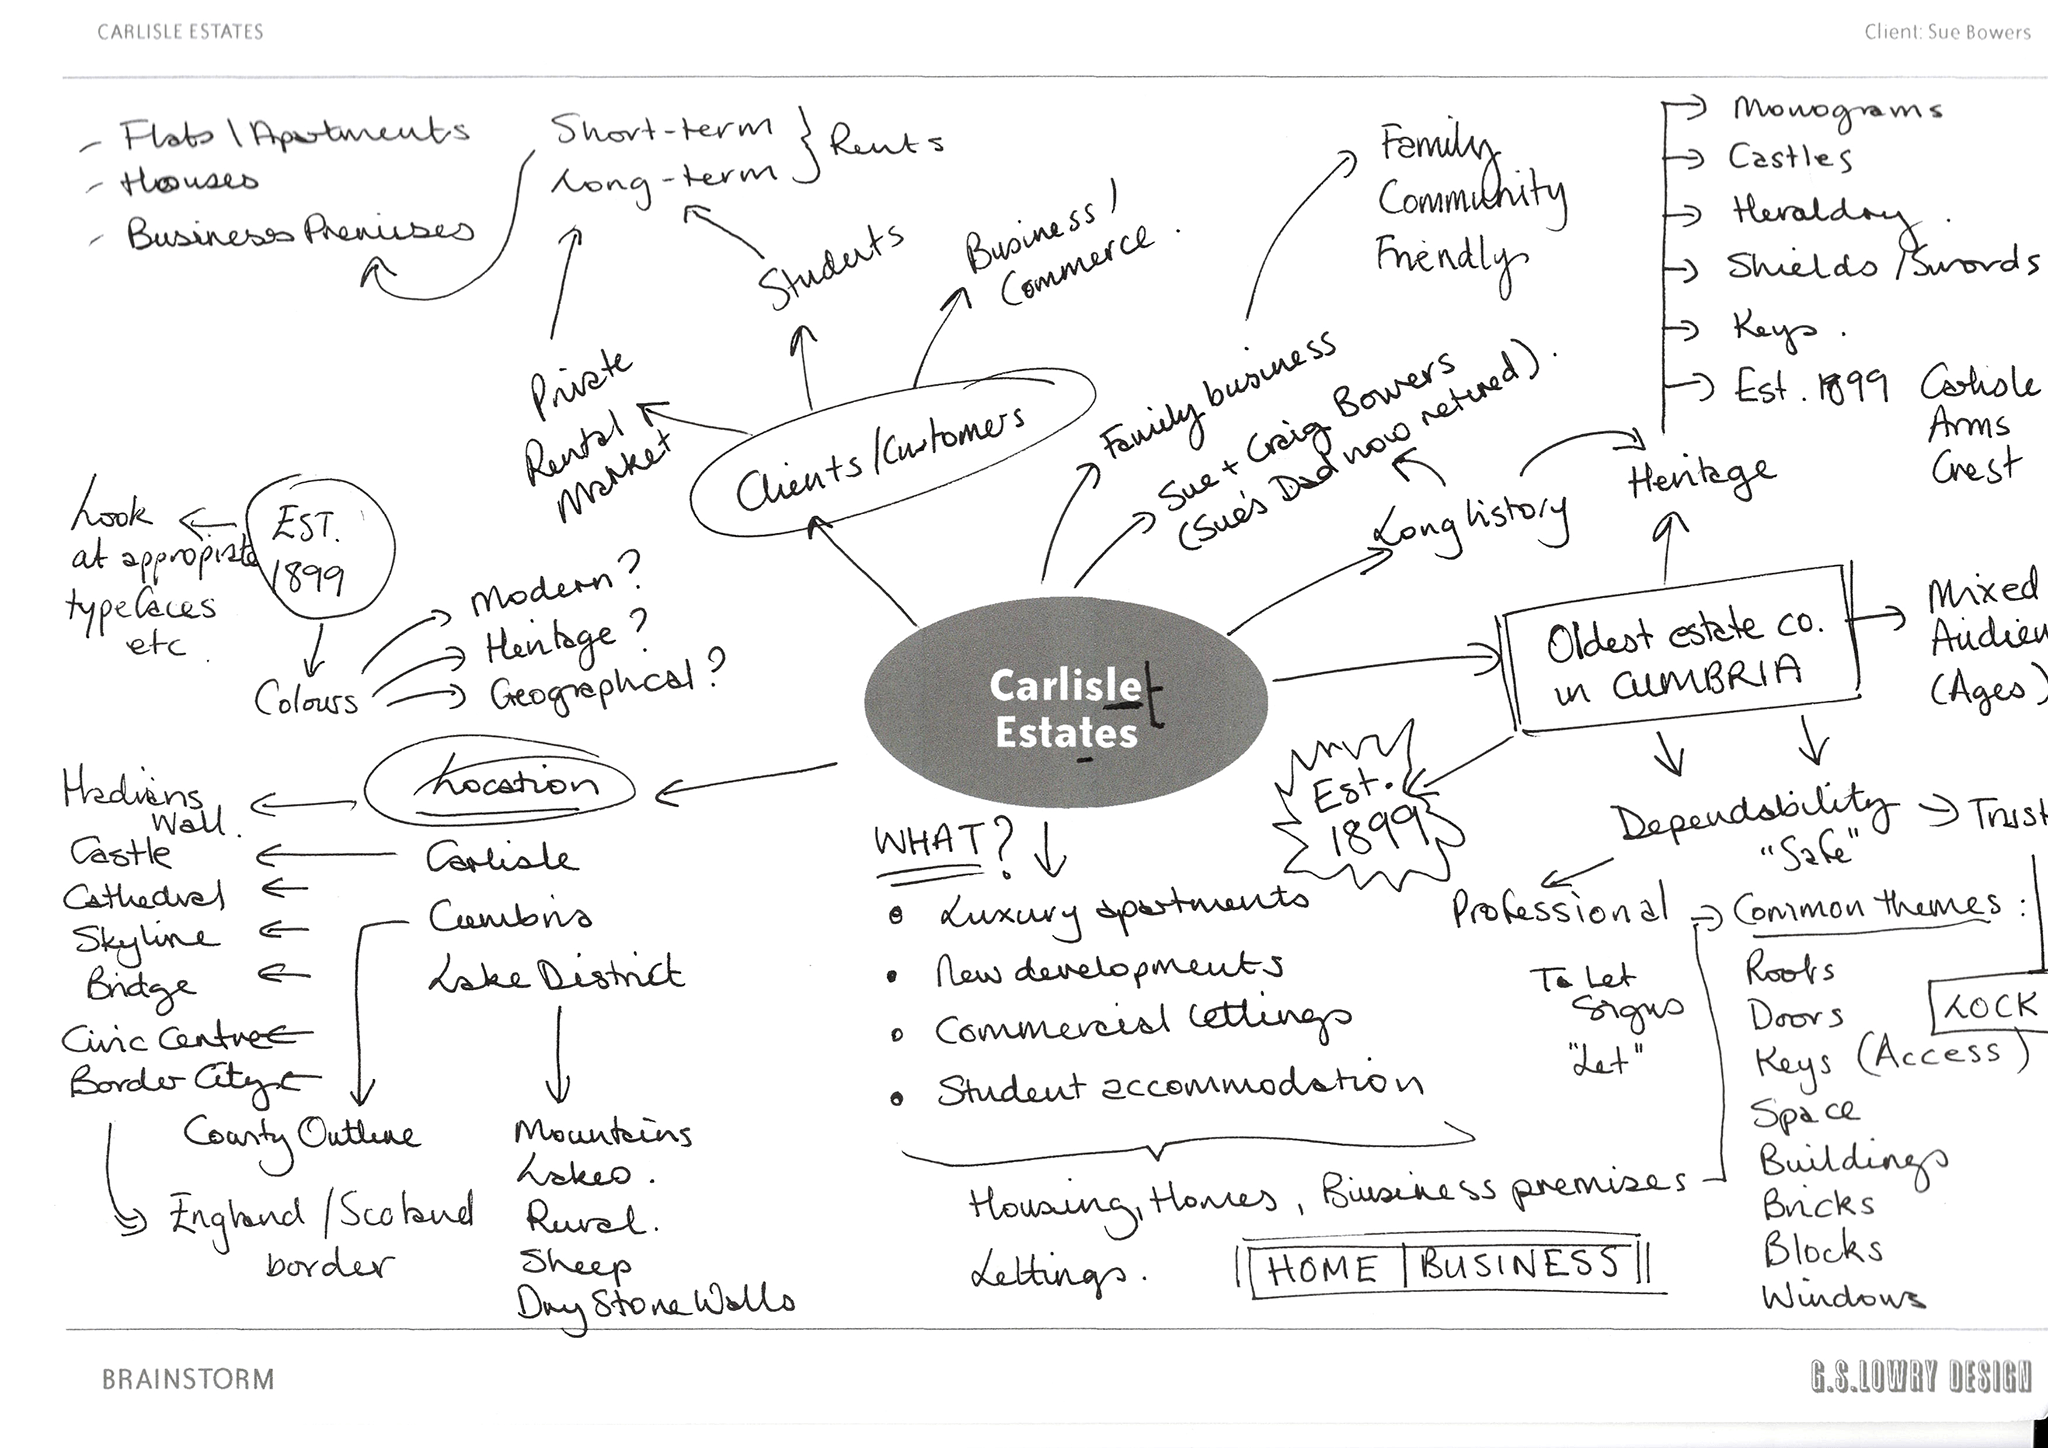 CARLISLE ESTATES
Client: Sue Bowers
- Flats / Apartments
- Houses
- Business Premises
Short-term
Long-term
} Rents
Students
Business /
Commerce.
Family
Community
Friendly
Monograms
Castles
Heraldry.
Shields / Swords
Keys.
Est. 1899 Carlisle
Arms
Crest
Private
Rental
Market
Clients/Customers
Family business
Sue + Craig Bowers
(Sue's Dad now retired).
Long history
Heritage
Look
at appropriate
typefaces
etc.
EST.
1899
Colours
Modern?
Heritage?
Geographical?
Carlisle
Estates
Oldest estate co.
in CUMBRIA
Mixed
Audien
(Ages)
Est.
1899
Dependability
"Safe"
Trust
Professional
To Let
Signs
"Let"
Common themes:
Roofs
Doors
Keys (Access)
Space
Buildings
Bricks
Blocks
Windows
LOCK
Location
Hadrians
Wall.
Castle
Cathedral
Skyline
Bridge
Civic Centre
Border City
Carlisle
Cumbria
Lake District
County Outline
England / Scotland
border
Mountains
Lakes.
Rural.
Sheep
Dry Stone Walls
WHAT?
• Luxury apartments
• New developments
• Commercial lettings
• Student accommodation
Housing, Homes, Business premises
Lettings.
HOME | BUSINESS
BRAINSTORM
G.S.LOWRY DESIGN